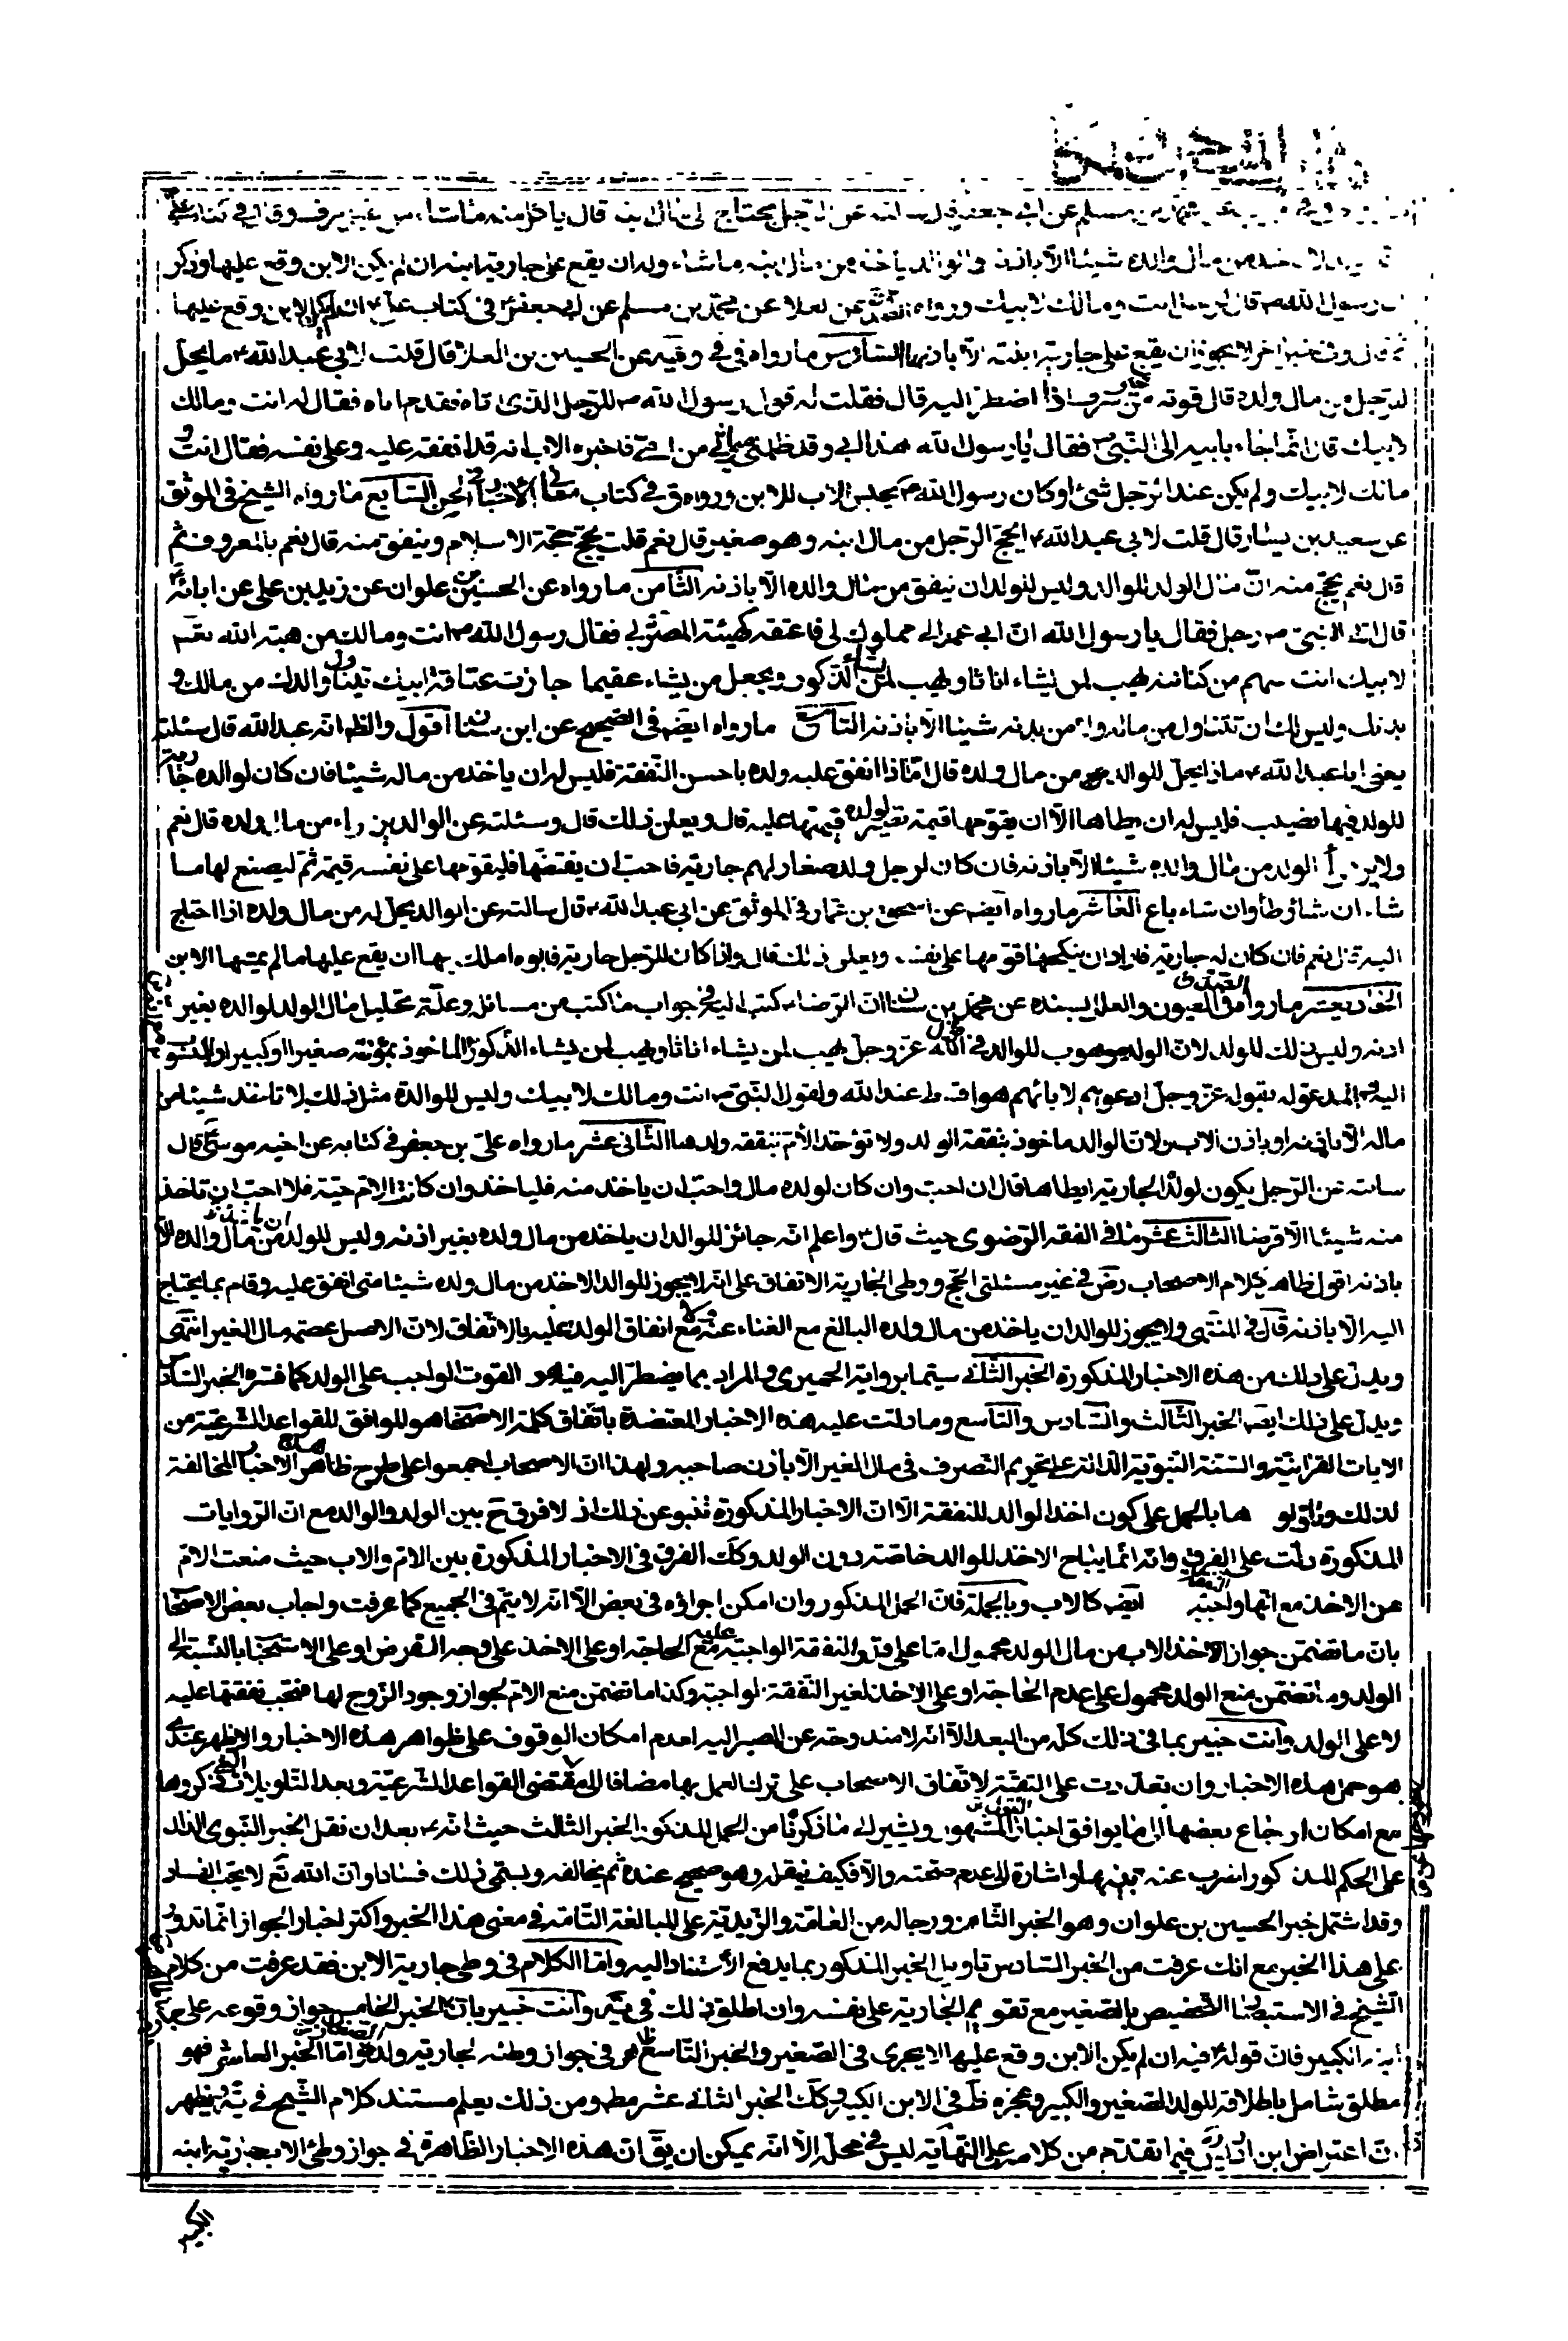 مسلم عن ابي جعفر قال سئلته عن الرجل يحتاج الى مال ابنه قال ياكل منه ما شاء من غير سرف وقال في كتاب علي
من مال والده شيئا الا باذنه والوالد ياخذ من مال ابنه ما شاء وله ان يقع على جارية ابنه ان لم يكن الابن وقع عليها وذكر
ان رسول الله ص قال لرجل انت ومالك لابيك ورواه الصدوق عن العلا عن محمد بن مسلم عن ابي جعفر ع في كتاب علي ع ان لم يكن الابن وقع عليها
ثم قال وفي خبر اخر لا يجوز ان يقع على جارية ابنته الا باذنها السادس ما رواه في في وفيه عن الحسين بن ابي العلا قال قلت لابي عبد الله ع ما يحل
للرجل من مال ولده قال قوته من غير سرف اذا اضطر اليه قال فقلت له قول رسول الله ص للرجل الذي اتاه فقدم اباه فقال له انت ومالك
لابيك فقال انما جاء بابيه الى النبي ص فقال يا رسول الله هذا ابي وقد ظلمني ميراثي من امي فاخبره الاب انه قد انفقه عليه وعلى نفسه فقال انت و
مالك لابيك ولم يكن عند الرجل شئ او كان رسول الله ص يحبس الاب للابن ورواه ق في كتاب معاني الاخبار السابع ما رواه الشيخ في الموثق
عن سعيد بن يسار قال قلت لابي عبد الله ع ايحج الرجل من مال ابنه وهو صغير قال نعم قلت يحج حجة الاسلام وينفق منه قال نعم بالمعروف ثم
قال نعم يحج منه ان مال الولد للوالد وليس للولد ان ينفق من مال والده الا باذنه الثامن ما رواه عن الحسين بن علوان عن زيد بن علي عن ابائه ع
قال اتى النبي ص رجل فقال يا رسول الله ان ابي عمد الى مملوك لي فاعتقه كهيئة المضر بي فقال رسول الله ص انت ومالك من هبة الله تعم
لابيك انت سهم من كنانته يهب لمن يشاء اناثا ويهب لمن يشاء الذكور ويجعل من يشاء عقيما جازت عتاقة ابيك يتناول والدك من مالك و
بدنك وليس لك ان تتناول من ماله ولا من بدنه شيئا الا باذنه التاسع ما رواه ايضا في الصحيح عن ابن سنان اقول والظ انه عبد الله قال سئلته
يعني ابا عبد الله ع ماذا يحل للوالد من مال ولده قال اما اذا انفق عليه ولده باحسن النفقة فليس له ان ياخذ من ماله شيئا فان كان لوالده جارية
للولد فيها نصيب فليس له ان يطاها الا ان يقومها قيمة تصير لولده قيمتها عليه قال ويعلن ذلك قال وسئلته عن الوالد يرزء من مال ولده قال نعم
ولا يرزأ الولد من مال والده شيئا الا باذنه فان كان لرجل ولد صغار لهم جارية فاحب ان يقتضها فليقومها على نفسه قيمة ثم ليصنع بها ما
شاء ان شاء وطأ وان شاء باع العاشر ما رواه ايضا عن اسحق بن عمار في الموثق عن ابي عبد الله ع قال سالته عن الوالد يحل له من مال ولده اذا احتاج
اليه قال نعم فان كان له جارية فاراد ان ينكحها قومها على نفسه ويعلن ذلك قال واذا كان للرجل جارية فابوه املك بها ان يقع عليها ما لم يمسها الابن
الحاديعشر ما رواه الصدوق في العيون والعلل بسنده عن محمد بن سنان ان الرضا ع كتب اليه في جواب ما كتب من مسائله وعلة تحليل مال الولد لوالده بغير
اذنه وليس ذلك للولد لان الولد موهوب للوالد في قول الله عز وجل يهب لمن يشاء اناثا ويهب لمن يشاء الذكور مع انه الماخوذ بمؤنته صغيرا او كبيرا والمنسوب
اليه والمدعو له بقوله عز وجل ادعوهم لابائهم هو اقسط عند الله ولقول النبي ص انت ومالك لابيك وليس للوالدة مثل ذلك لا تاخذ شيئا من
ماله الا باذنه او باذن الاب ولان الوالد ماخوذ بنفقة الولد ولا تؤخذ الام بنفقة ولدها الثاني عشر ما رواه علي بن جعفر في كتابه عن اخيه موسى ع قال
سالته عن الرجل يكون لولده الجارية ايطاها قال ان احب وان كان لولده مال واحب ان ياخذ منه فلياخذ وان كانت الام حية فلا احب ان تاخذ
منه شيئا الا قرضا الثالث عشر ما في الفقه الرضوي حيث قال ع واعلم انه جائز للوالد ان ياخذ من مال ولده بغير اذنه وليس للولد ان ياخذ من مال والده الا
باذنه اقول ظاهر كلام الاصحاب رض في غير مسئلتي الحج ووطي الجارية الاتفاق على انه لا يجوز للوالد الاخذ من مال ولده شيئا متى انفق عليه وقام بما يحتاج
اليه الا باذنه قال في المنتهى ولا يجوز للوالد ان ياخذ من مال ولده البالغ مع الغناء عنه ولا مع انفاق الولد عليه بالاتفاق لان الاصل عصمة مال الغير انتهى
ويدل على ذلك من هذه الاخبار المذكورة الخبر الثاني سيما برواية الحميري والمراد بما يضطر اليه فيه هو القوت الواجب على الولد كما فسره الخبر السادس
ويدل على ذلك ايضا الخبر الثالث والسادس والتاسع وما دلت عليه هذه الاخبار المعتضدة باتفاق كلمة الاصحاب هو الموافق للقواعد الشرعية من
الايات القرانية والسنة النبوية الدالة على تحريم التصرف في مال الغير الا باذن صاحبه ولهذا ان الاصحاب اجمعوا على طرح ظاهر هذه الاخبار المخالفة
لذلك وتاولوها بالحمل على كون اخذ الوالد للنفقة الا ان الاخبار المذكورة تنبو عن ذلك اذ لا فرق ح بين الولد والوالد مع ان الروايات
المذكورة دلت على الفرق وانه انما يباح الاخذ للوالد خاصة دون الولد وكك الفرق في الاخبار المذكورة بين الام والاب حيث منعت الام
عن الاخذ مع انها واجبة النفقة ايضا كالاب وبالجملة فان الحمل المذكور وان امكن اجراؤه في بعض الا انه لا يتم في الجميع كما عرفت واجاب بعض الاصحاب
بان ما تضمن جواز اخذ الاب من مال الولد محمول اما على قدر النفقة الواجبة عليه مع الحاجة او على الاخذ على وجه القرض او على الاستحباب بالنسبة الى
الولد وما تضمن منع الولد محمول على عدم الحاجة او على الاخذ لغير النفقة الواجبة وكذا ما تضمن منع الام لجواز وجود الزوج لها فتجب نفقتها عليه
لا على الولد وانت خبير بما في ذلك كله من البعد الا انه لا مندوحة عن المصير اليه لعدم امكان الوقوف على ظواهر هذه الاخبار والاظهر عندي
هو حمل هذه الاخبار وان تعددت على التقية لاتفاق الاصحاب على ترك العمل بها مضافا الى مقتضى القواعد الشرعية وبعد التاويلات التي ذكروها
مع امكان ارجاع بعضها الى ما يوافق اخبار القول المشهور ويشير الى ما ذكرنا من الحمل المذكور الخبر الثالث حيث انه ع بعد ان نقل الخبر النبوي الدال
على الحكم المذكور اضرب عنه تنبيها واشارة الى عدم صحته والا فكيف ينقله وهو صحيح عنده ثم يخالفه ويسمي ذلك فسادا وان الله تع لا يحب الفساد
وقد اشتمل خبر الحسين بن علوان وهو الخبر الثامن ورجاله من العامة والزيدية على المبالغة التامة في معنى هذا الخبر واكثر اخبار الجواز انما تدور
على هذا الخبر مع انك عرفت من الخبر السادس تاويل الخبر المذكور بما يدفع الاستناد اليه واما الكلام في وطي جارية الابن فقد عرفت من كلام
الشيخ في الاستبصار التخصيص بالصغير مع تقويم الجارية على نفسه وان اطلق ذلك في ية وانت خبير بان الخبر الخامس جواز وقوعه على جارية
ابنه الكبير فان قوله ع فيه ان لم يكن الابن وقع عليها لا يجري في الصغير والخبر التاسع ظاهر في جواز وطئه لجارية ولده الصغار واما الخبر العاشر فهو
مطلق شامل باطلاقه للولد الصغير والكبير وعجزه ظ في الابن الكبير وكك الخبر الثاني عشر مط ومن ذلك يعلم مستند كلام الشيخ في ية ويظهر
ان اعتراض ابن ادريس فيما تقدم من كلامه على النهاية ليس في محله الا انه يمكن ان يق ان هذه الاخبار الظاهرة في جواز وطئ الاب جارية ابنه
الكبير